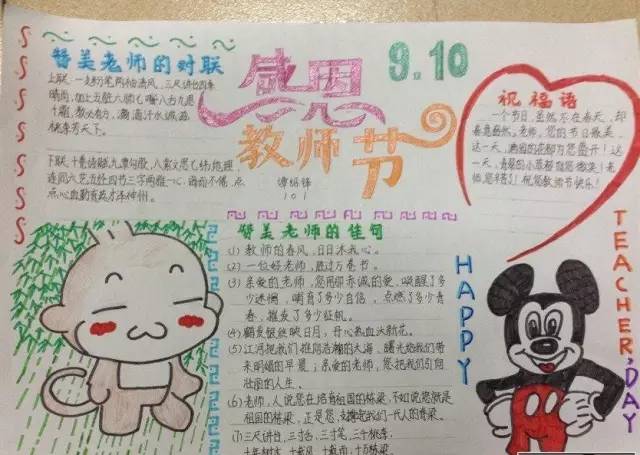 赞美老师的对联
上联:一支粉笔两袖清风,三尺讲台四季
晴雨,加上五脏六腑七嘴八舌九思
十霜,教必有方,滴滴汗水诚滋
桃李芳天下。
下联:十卷诗赋九章勾股,八索文思七纬地理,
连同六艺五经四书三字两雅一心,诲而不倦,点
点心血勤育英才泽神州。
感恩
教师节
9.10
谭铭锋
101
祝福语
一个节日,虽然不在春天,却
春意盎然。老师,您的节日最美,
这一天,满园的花都为您盛开!这
一天,青翠的小草都为您微笑!老
师,您辛苦了!祝您教师节快乐!
赞美老师的佳句
(1) 教师的春风,日日沐我心。
(2) 一位好老师,胜过万卷书。
(3) 亲爱的老师,您用那赤诚的爱,唤醒了多
少迷惘,哺育了多少自信,点燃了多少青
春,摧发了多少征帆。
(4) 鹤发银丝映日月,丹心热血沃新花。
(5) 江河把我们推向浩瀚的大海,曙光给我们带
来明媚的早晨;亲爱的老师,您把我们引向
壮丽的人生。
(6) 老师,人说您在培育祖国的栋梁,不如说您就是
祖国的栋梁。正是您,支撑起我们一代人的脊梁。
(7) 三尺讲台,三寸舌,三寸笔,三千桃李;
十年树木,十载风,十载雨,十万栋梁
HAPPY
TEACHER'DAY